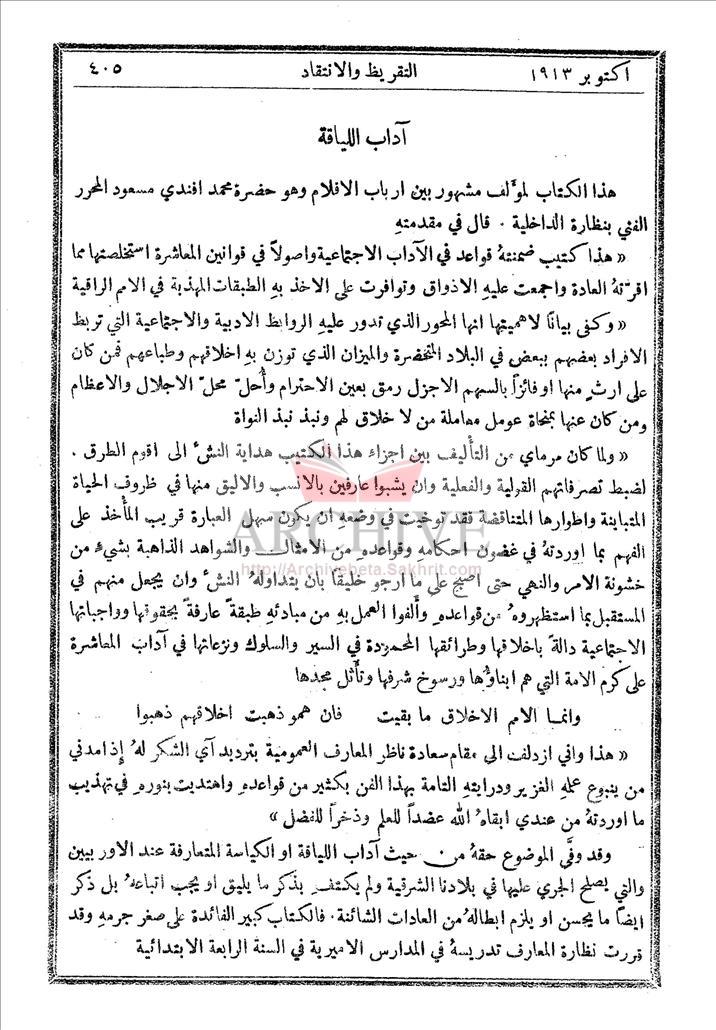 اكتوبر ١٩١٣ التقريظ والانتقاد ٤٠٥
آداب اللياقة
هذا الكتاب لمؤلف مشهور بين ارباب الاقلام وهو حضرة محمد افندي مسعود المحرر
الفني بنظارة الداخلية . قال في مقدمتهِ
« هذا كتيب ضمنتهُ قواعد في الآداب الاجتماعية واصولاً في قوانين المعاشرة استخلصتها مما
اقرّتهُ العادة واجمعت عليهِ الاذواق وتوافرت على الاخذ بهِ الطبقات المهذبة في الامم الراقية
« وكفى بيانًا لاهميتها انها المحور الذي تدور عليهِ الروابط الادبية والاجتماعية التي تربط
الافراد بعضهم ببعض في البلاد المتحضرة والميزان الذي توزن بهِ اخلاقهم وطباعهم فمن كان
على ارثٍ منها او فائزًا بالسهم الاجزل رمق بعين الاحترام وأُحلّ محلّ الاجلال والاعظام
ومن كان عنها بمنحاة عومل معاملة من لا خلاق لهم ونبذ نبذ النواة
« ولما كان مرماي من التأليف بين اجزاء هذا الكتيب هداية النشء الى اقوم الطرق .
لضبط تصرفاتهم القولية والفعلية وان يشبوا عارفين بالانسب والاليق منها في ظروف الحياة
المتباينة واطوارها المتناقضة فقد توخيت في وضعهِ ان يكون سهل العبارة قريب المأخذ على
الفهم بما اوردتهُ في غضون احكامه وقواعدهِ من الامثال والشواهد الذاهبة بشيء من
خشونة الامر والنهي حتى اصبح على ما ارجو خليقًا بان يتداولهُ النشء وان يجعل منهم في
المستقبل بما استظهروهُ من قواعدهِ وألفوا العمل بهِ من مبادئهِ طبقةً عارفةً بحقوقها وواجباتها
الاجتماعية دالةً باخلاقها وطرائقها المحمودة في السير والسلوك ونزعاتها في آداب المعاشرة
على كرم الامة التي هم ابناؤُها ورسوخ شرفها وتأثل مجدها
وانما الامم الاخلاق ما بقيت فان همو ذهبت اخلاقهم ذهبوا
« هذا واني ازدلفت الى مقام سعادة ناظر المعارف العمومية بترديد آي الشكر لهُ إذ امدني
من ينبوع علمهِ الغزير ودرايتهِ التامة بهذا الفن بكثير من قواعدهِ واهتديت بنورهِ في تهذيب
ما اوردتهُ من عندي ابقاهُ الله عضداً للعلم وذخراً للفضل »
وقد وفَّى الموضوع حقهُ من حيث آداب اللياقة او الكياسة المتعارفة عند الاوربيين
والتي يصلح الجري عليها في بلادنا الشرقية ولم يكتفِ بذكر ما يليق او يجب اتباعهُ بل ذكر
ايضًا ما يحسن او يلزم ابطالهُ من العادات الشائنة . فالكتاب كبير الفائدة على صغر جرمهِ وقد
قررت نظارة المعارف تدريسهُ في المدارس الاميرية في السنة الرابعة الابتدائية
ARCHIVE
http://Archivebeta.Sakhrit.com